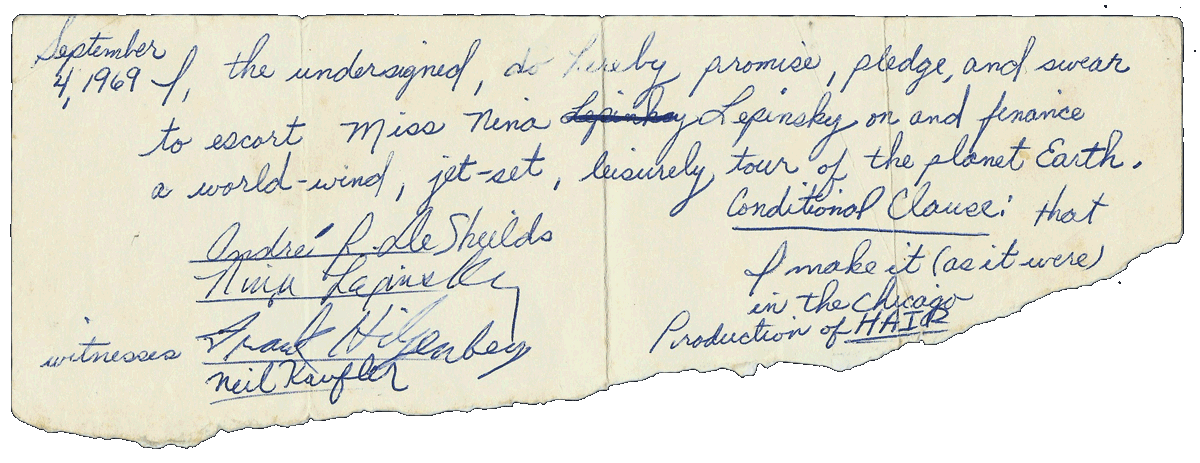 September
4, 1969 I, the undersigned, do hereby promise, pledge, and swear
to escort Miss Nina Lepinsky Lepinsky on and finance
a world-wind, jet-set, leisurely tour of the planet Earth.
Conditional Clause: that
I make it (as it were)
in the Chicago
Production of HAIR
André R. De Sheilds
Nina Lapinsky
witnesses Frank Hilgenberg
Neil Kaufler